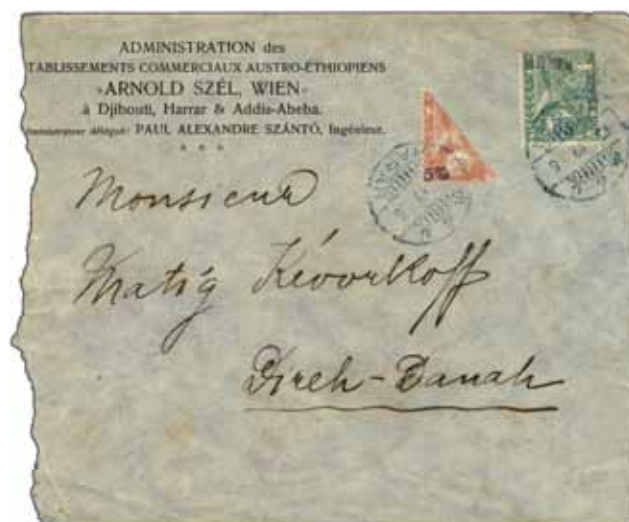 ADMINISTRATION des
TABLISSEMENTS COMMERCIAUX AUSTRO-ÉTHIOPIENS
»ARNOLD SZÉL, WIEN«
à Djibouti, Harrar & Addis-Abeba.
délégué: PAUL ALEXANDRE SZÁNTÓ, Ingénieur.
5%
Monsieur
Matig Kévorkoff
Direh-Daouah